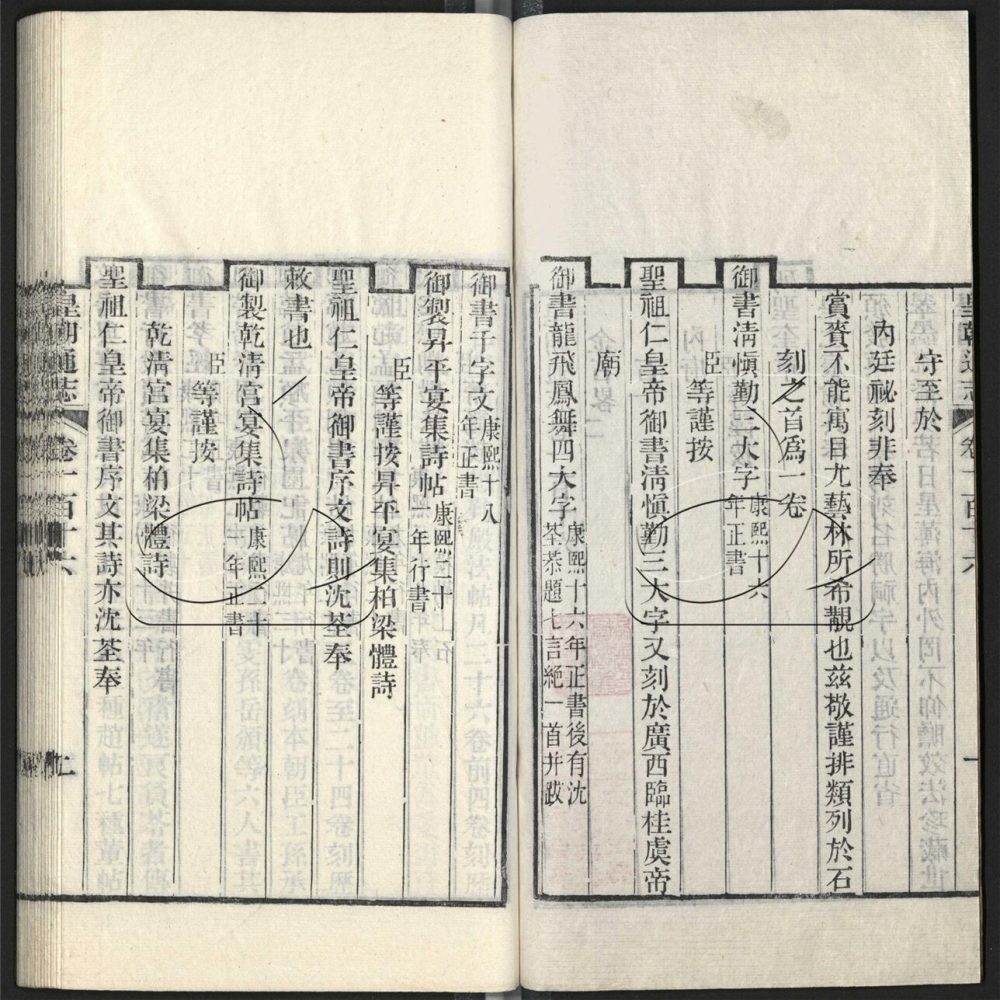 皇朝通志 卷一百十六 一
守至於
內廷祕刻非奉
賞賚不能寓目尤藝林所希覯也茲敬謹排類列於石
刻之首爲一卷
御書清愼勤三大字康熙十六年正書
臣等謹按
聖祖仁皇帝御書清愼勤三大字又刻於廣西臨桂虞帝
廟
御書龍飛鳳舞四大字康熙十六年正書後有沈荃恭題七言絶一首并跋
御書千字文康熙十八年正書
御製昇平宴集詩帖康熙二十一年行書
臣等謹按昇平宴集柏梁體詩
聖祖仁皇帝御書序文詩則沈荃奉
敕書也
御製乾清宮宴集詩帖康熙二十一年正書
臣等謹按
乾清宮宴集柏梁體詩
聖祖仁皇帝御書序文其詩亦沈荃奉
皇朝通志 卷一百十六